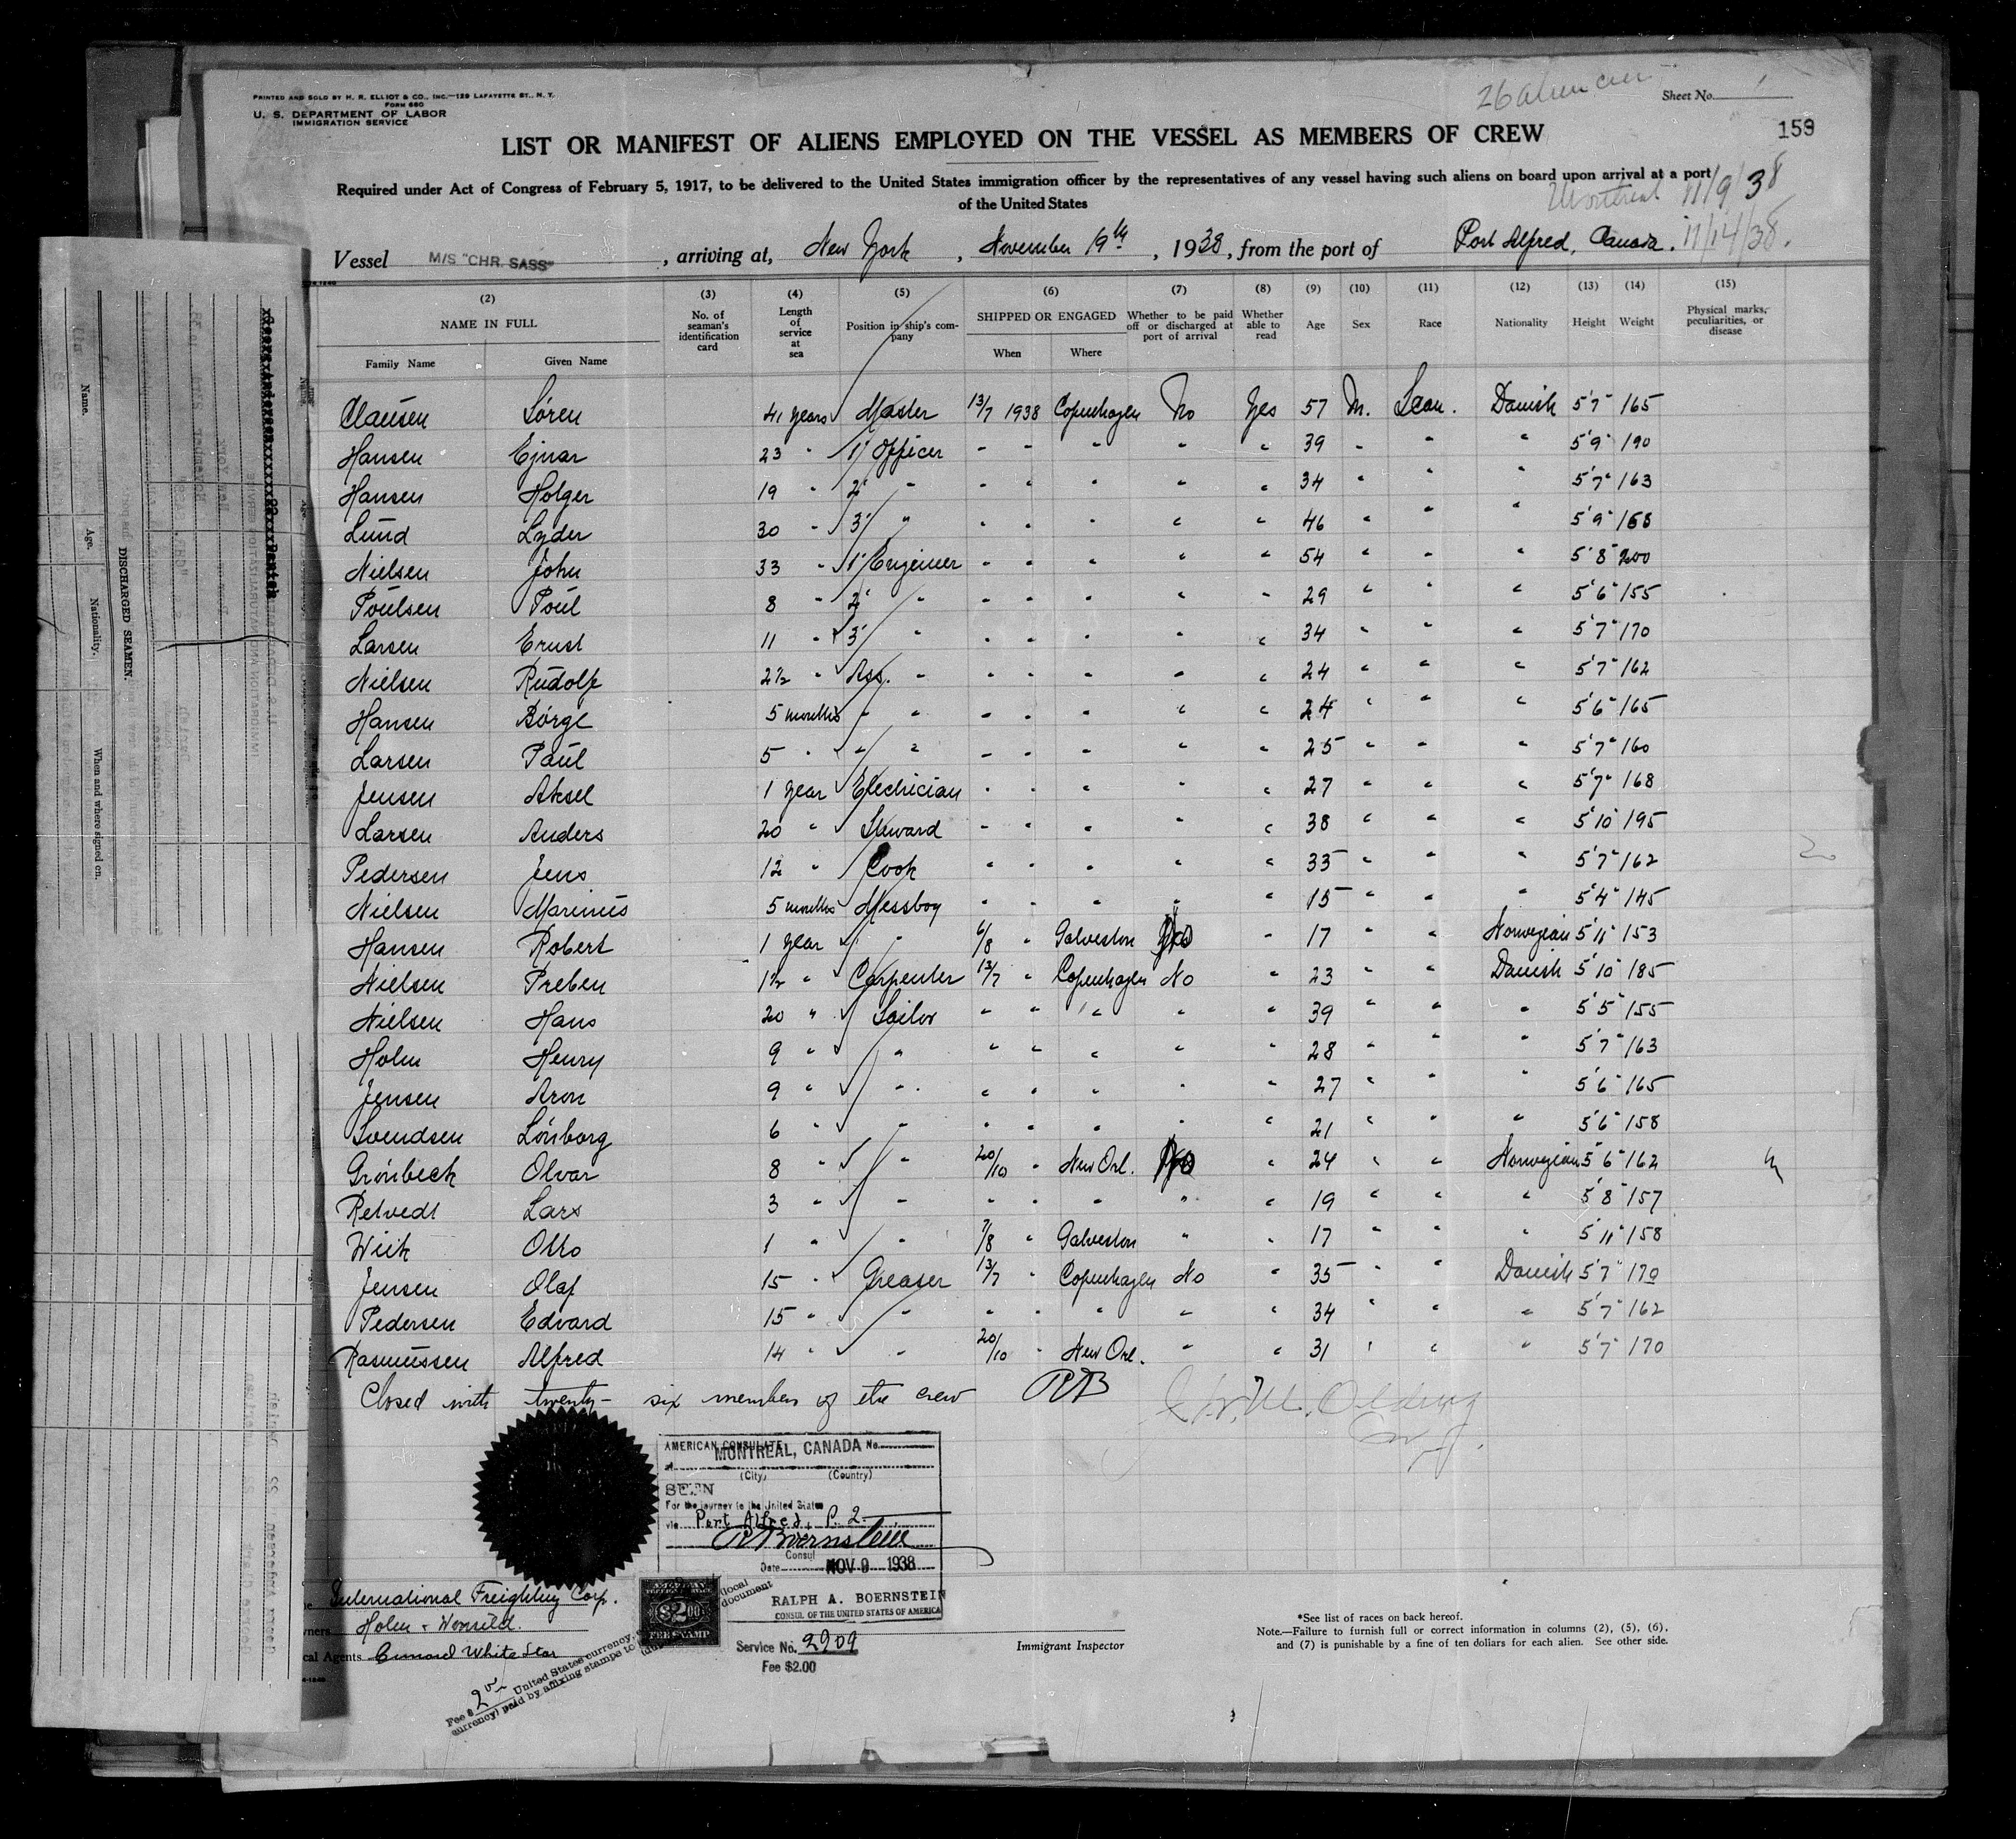 PRINTED AND SOLD BY H. R. ELLIOT & CO., INC.—129 LAFAYETTE ST., N. Y.
FORM 680
U. S. DEPARTMENT OF LABOR
IMMIGRATION SERVICE
Sheet No. 1
159
LIST OR MANIFEST OF ALIENS EMPLOYED ON THE VESSEL AS MEMBERS OF CREW
Required under Act of Congress of February 5, 1917, to be delivered to the United States immigration officer by the representatives of any vessel having such aliens on board upon arrival at a port
of the United States
Montreal 11/9/38
Vessel M/S "CHR. SASS", arriving at, New York, November 19th, 1938, from the port of Port Alfred, Canada. 11/14/38.
(2) (3) (4) (5) (6) (7) (8) (9) (10) (11) (12) (13) (14) (15)
NAME IN FULL
Family Name Given Name
No. of seaman's identification card
Length of service at sea
Position in ship's company
SHIPPED OR ENGAGED
When Where
Whether to be paid off or discharged at port of arrival
Whether able to read
Age Sex Race Nationality Height Weight
Physical marks, peculiarities, or disease
Clausen Sören 41 years Master 13/7 1938 Copenhagen No Yes 57 M. Scan. Danish 5'7" 165
Hansen Ejnar 23 " 1' Officer " " " " " 39 " " " 5'9" 190
Hansen Holger 19 " 2' " " " " " " 34 " " " 5'7" 163
Lund Lyder 30 " 3' " " " " " " 46 " " " 5'9" 168
Nielsen John 33 " 1' Engineer " " " " " 54 " " " 5'8" 200
Poulsen Poul 8 " 2' " " " " " " 29 " " " 5'6" 155
Larsen Ernst 11 " 3' " " " " " " 34 " " " 5'7" 170
Nielsen Rudolf 2½ " Ass. " " " " " " 24 " " " 5'7" 162
Hansen Börge 5 months " " " " " " " 24 " " " 5'6" 165
Larsen Paul 5 " " " " " " " " 25 " " " 5'7" 160
Jensen Aksel 1 year Electrician " " " " " 27 " " " 5'7" 168
Larsen Anders 20 " Steward " " " " " 38 " " " 5'10" 195
Pedersen Jens 12 " Cook " " " " " 33 " " " 5'7" 162
Nielsen Marinus 5 months Messboy " " " " " 15 " " " 5'4" 145
Hansen Robert 1 year " 6/8 " Galveston No " 17 " " Norwegian 5'11" 153
Nielsen Preben 1½ " Carpenter 13/7 " Copenhagen No " 23 " " Danish 5'10" 185
Nielsen Hans 20 " Sailor " " " " " 39 " " " 5'5" 155
Holm Henry 9 " " " " " " " 28 " " " 5'7" 163
Jensen Aron 9 " " " " " " " 27 " " " 5'6" 165
Svendsen Lönborg 6 " " " " " " " 21 " " " 5'6" 158
Grönbeck Olvar 8 " " 20/10 " New Orl. No " 24 " " Norwegian 5'6" 162
Retvedt Lars 3 " " " " " " " 19 " " " 5'8" 157
Wiik Otto 1 " " 7/8 " Galveston " " 17 " " " 5'11" 158
Jensen Olaf 15 " Greaser 13/7 " Copenhagen No " 35 " " Danish 5'7" 170
Pedersen Edvard 15 " " " " " " " 34 " " " 5'7" 162
Rasmussen Alfred 14 " " 20/10 " New Orl. " " 31 " " " 5'7" 170
Closed with twenty-six members of the crew RAB
AMERICAN CONSULATE No.
at MONTREAL, CANADA
(City) (Country)
SEEN
For the journey to the United States
via Port Alfred, P. 2.
R A Boernstein
Consul
Date NOV 9 1938
RALPH A. BOERNSTEIN
CONSUL OF THE UNITED STATES OF AMERICA
Service No. 2909
Fee $2.00
$2.00
FEE STAMP
International Freighting Corp.
Holm & Wonsild.
Agents Cunard White Star
Immigrant Inspector
*See list of races on back hereof.
Note.—Failure to furnish full or correct information in columns (2), (5), (6),
and (7) is punishable by a fine of ten dollars for each alien. See other side.
DISCHARGED SEAMEN.
Name. Age. Nationality. When and where signed on.